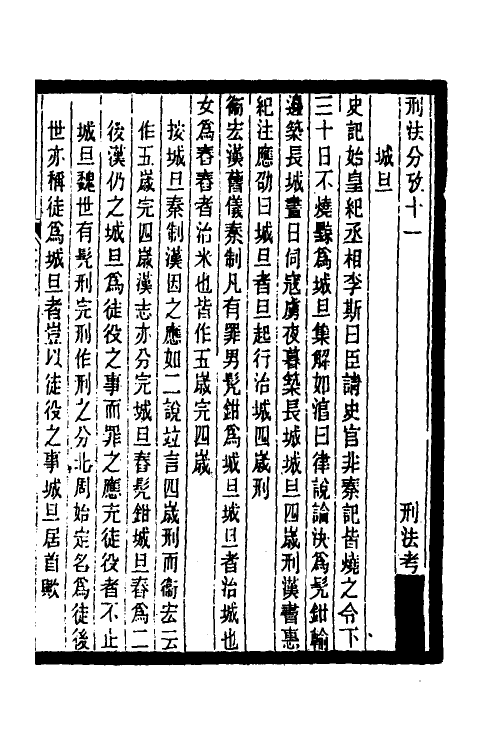 刑法分攷十一　刑法考
城旦
史記始皇紀丞相李斯曰臣請史官非秦記皆燒之令下
三十日不燒黥為城旦集解如淳曰律說論決為髡鉗輸
邊築長城晝日伺寇虜夜暮築長城城旦四歲刑漢書惠
紀注應劭曰城旦者旦起行治城四歲刑
衞宏漢舊儀秦制凡有罪男髡鉗為城旦城旦者治城也
女為舂舂者治米也皆作五歲完四歲
按城旦秦制漢因之應如二說竝言四歲刑而衞宏云
作五歲完四歲漢志亦分完城旦舂髡鉗城旦舂為二
後漢仍之城旦為徒役之事而罪之應充徒役者不止
城旦魏世有髡刑完刑作刑之分北周始定名為徒後
世亦稱徒為城旦者豈以徒役之事城旦居首歟